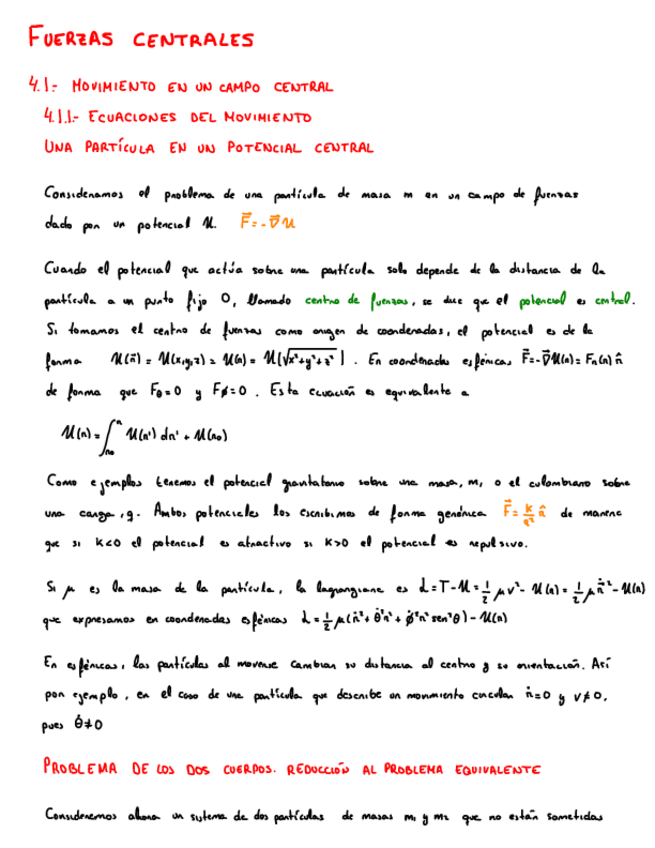 FUERZAS CENTRALES
4.1.- MOVIMIENTO EN UN CAMPO CENTRAL
4.1.1.- ECUACIONES DEL MOVIMIENTO
UNA PARTÍCULA EN UN POTENCIAL CENTRAL
Consideramos el problema de una partícula de masa m en un campo de fuerzas
dado por un potencial U. F⃗ = -∇⃗U
Cuando el potencial que actúa sobre una partícula solo depende de la distancia de la
partícula a un punto fijo O, llamado centro de fuerzas, se dice que el potencial es central.
Si tomamos el centro de fuerzas como origen de coordenadas, el potencial es de la
forma U(r⃗) = U(x,y,z) = U(r) = U(√x²+y²+z²). En coordenadas esféricas F⃗=-∇⃗U(r) = Fr(r) r̂
de forma que Fθ=0 y Fø=0. Esta ecuación es equivalente a
U(r) = ∫_{r₀}^{r} U(r') dr' + U(r₀)
Como ejemplos tenemos el potencial gravitatorio sobre una masa, m, o el culombiano sobre
una carga, q. Ambos potenciales los escribimos de forma genérica F⃗ = k/r² r̂ de manera
que si K<0 el potencial es atractivo si K>0 el potencial es repulsivo.
Si μ es la masa de la partícula, la lagrangiana es L=T-U=1/2 μv² - U(r) = 1/2 μṙ⃗² - U(r)
que expresamos en coordenadas esféricas L = 1/2 μ(ṙ² + θ̇²r² + ø̇²r² sen²θ) - U(r)
En esféricas, las partículas al moverse cambian su distancia al centro y su orientación. Así
por ejemplo, en el caso de una partícula que describe un movimiento circular ṙ=0 y v≠0,
pues θ̇≠0
PROBLEMA DE LOS DOS CUERPOS. REDUCCIÓN AL PROBLEMA EQUIVALENTE
Consideremos ahora un sistema de dos partículas de masas m₁ y m₂ que no están sometidas